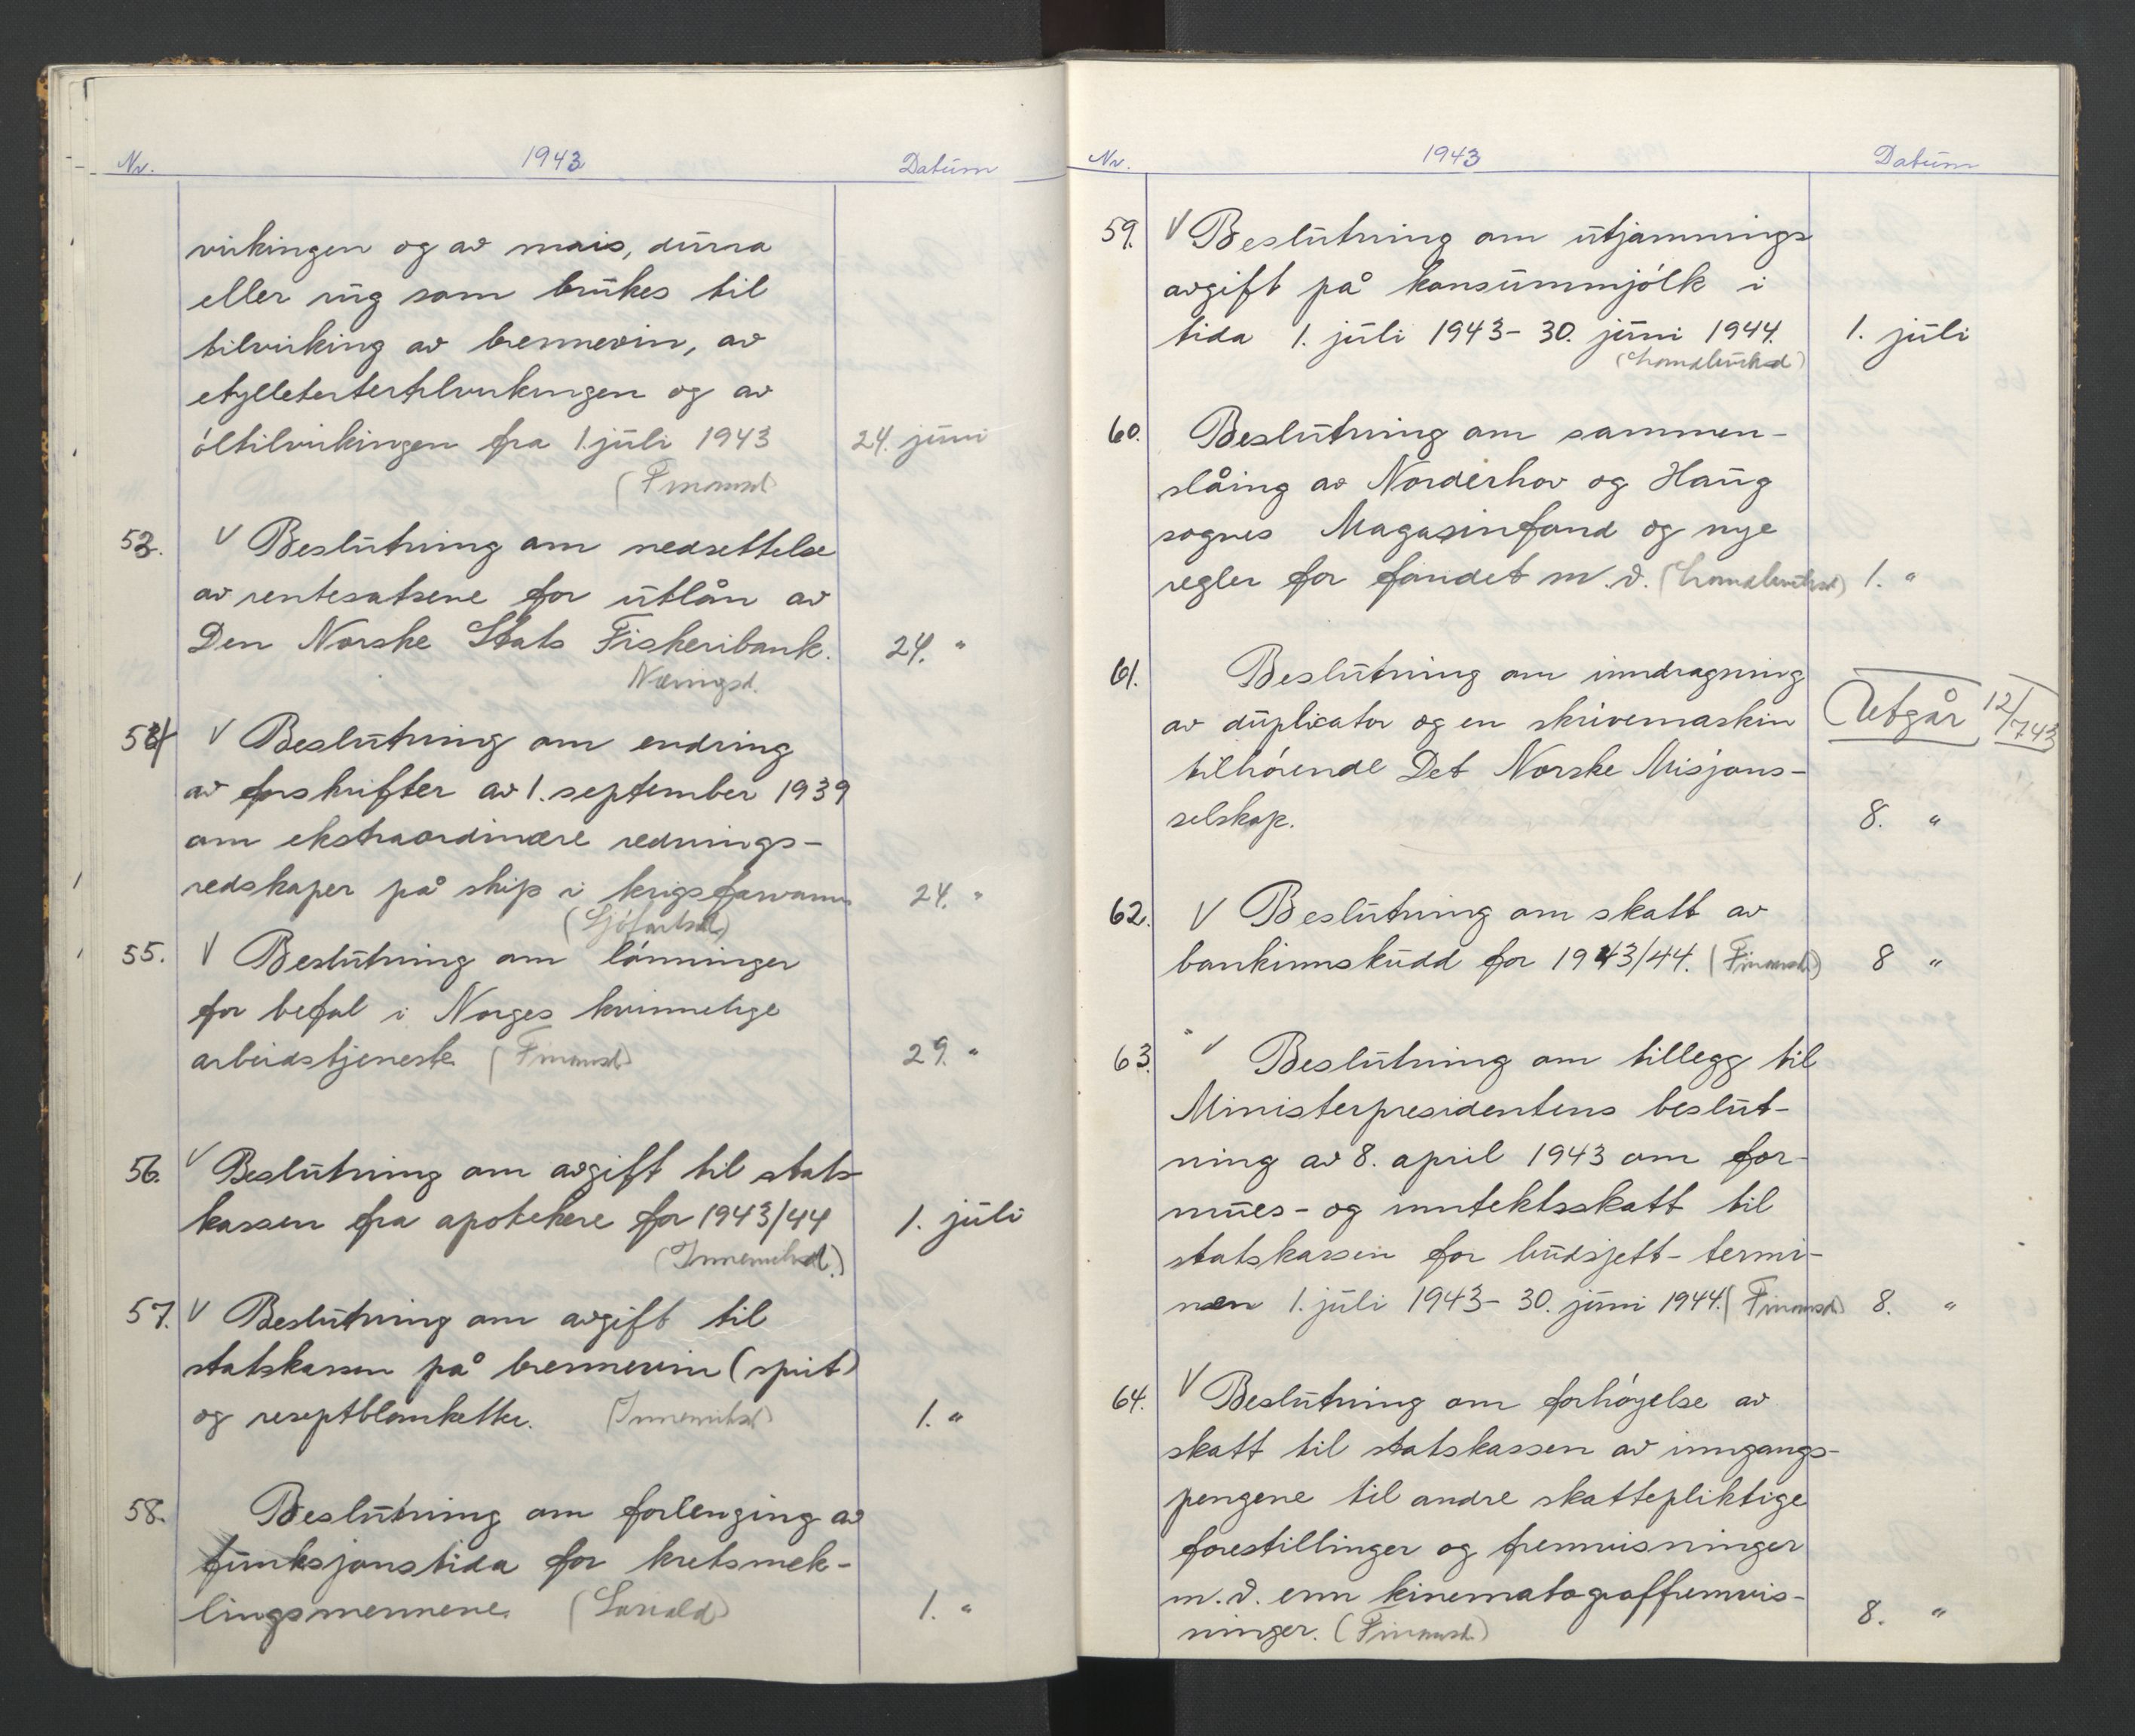 Nr. 1943 Datum
virkingen og av mais, durra
eller rug som brukes til
tilvirking av brennevin, av
etylletertertilvirkingen og av
óltilvirkingen fra 1. juli 1943 24. juni
(Finansd)
53. V Beslutning om nedsettelse
av rentesatsene for utlån av
Den Norske Stats Fiskeribank. 24. "
Næringsd.
54 V Beslutning om endring
av forskrifter av 1. september 1939
om ekstraordinære rednings-
redskaper på skip i krigsfarvann 24. "
(Sjófartsd)
55. V Beslutning om lónninger
for befal i Norges kvinnelige
arbeidstjeneste (Finansd) 29. "
56. V Beslutning om avgift til stats-
kassen fra apotekere for 1943/44 1. juli
(Innenriksd.)
57. V Beslutning om avgift til
statskassen på brennevin (sprit)
og reseptblanketter. (Innenriksd) 1. "
58. Beslutning om forlenging av
funksjonstida for kretsmek-
lingsmennene (Sosiald) 1. "
Nr. 1943 Datum
59. V Beslutning om utjamnings
avgift på konsummjólk i
tida 1. juli 1943 - 30. juni 1944. 1. juli
(Landbruksd)
60. Beslutning om sammen-
slåing av Norderhov og Haug
sognes Magasinfond og nye
regler for fondet m. v. (Landbruksd) 1. "
61. Beslutning om inndragning
av duplicator og en skrivemaskin Utgår 12/743
tilhórende Det Norske Misjons-
selskap. 8. "
62. V Beslutning om skatt av
bankinnskudd for 1943/44. (Finansd) 8 "
63. V Beslutning om tillegg til
Ministerpresidentens beslut-
ning av 8. april 1943 om for-
mues- og inntektsskatt til
statskassen for budsjett-termi-
nen 1. juli 1943 - 30. juni 1944. (Finansd) 8. "
64. V Beslutning om forhóyelse av
skatt til statskassen av inngangs-
pengene til andre skattepliktige
forestillinger og fremvisninger
m. v. enn kinematograffremvis-
ninger. (Finansd) 8. "